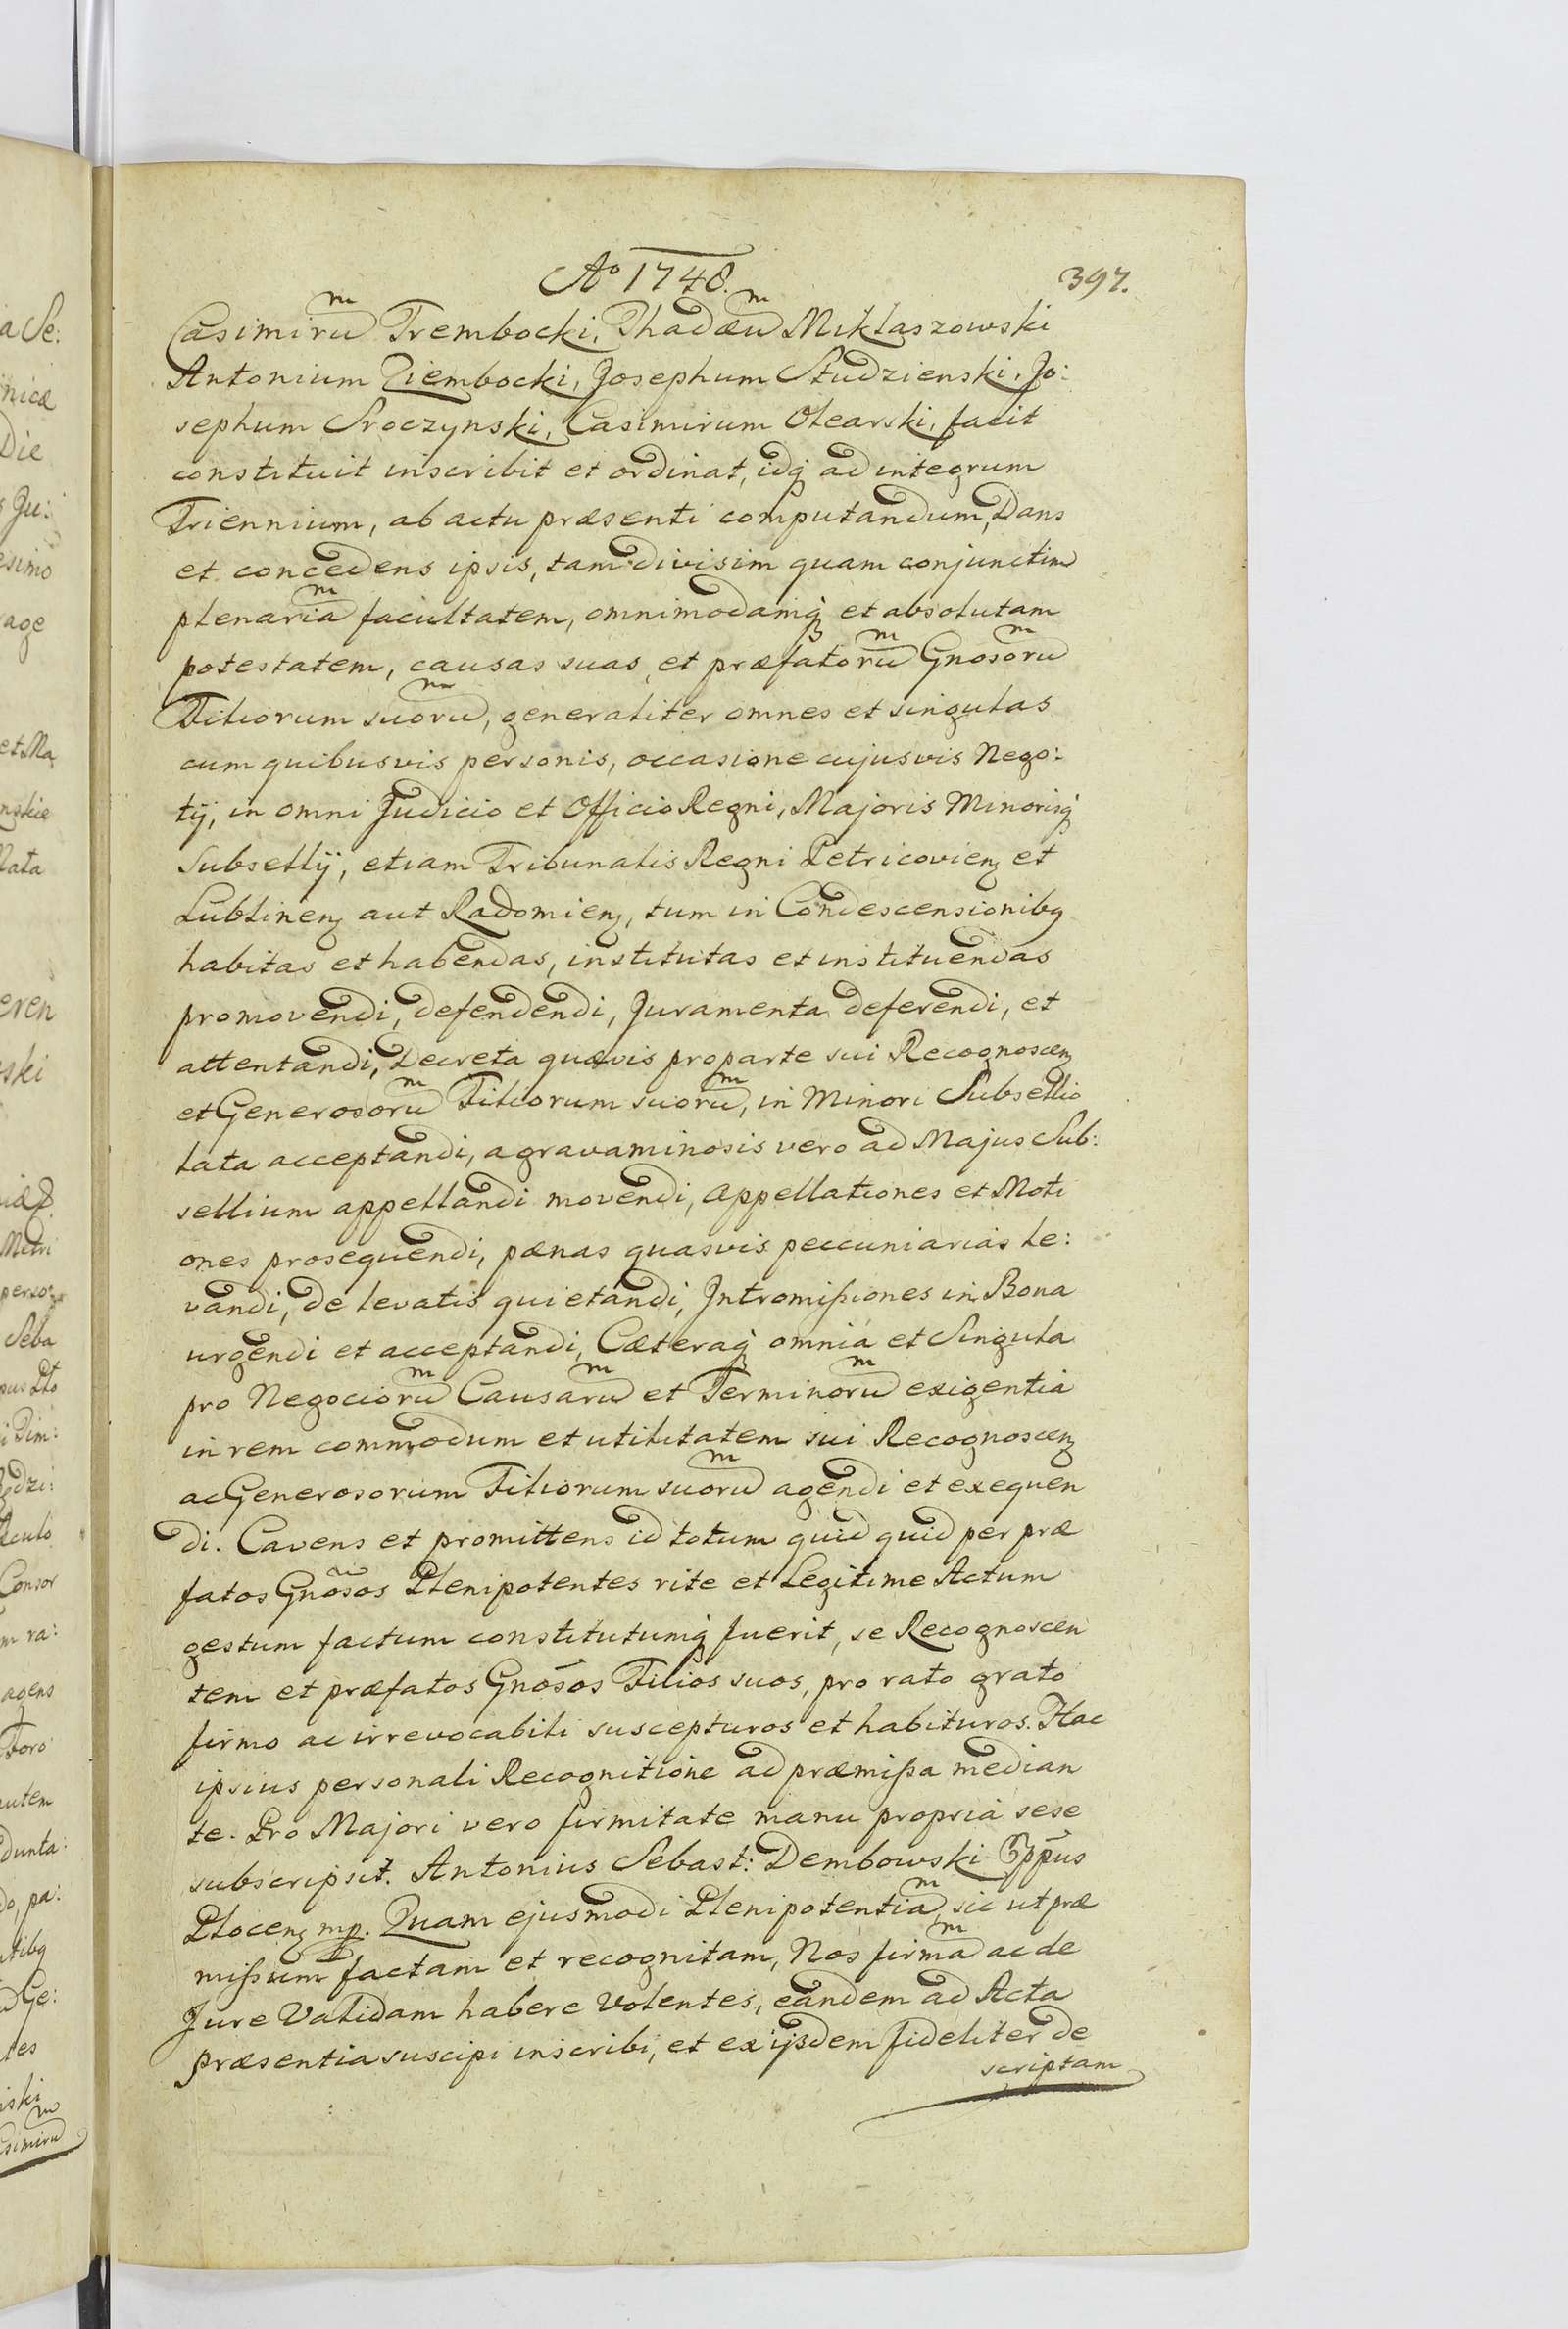 Aº 1748.
397.
Casimirũ Trembocki, Thadæũ Miklaszowski
Antonium Ziembocki, Josephum Studzienski, Jo:
sephum Sroczynski, Casimirum Olearski, facit
constituit inscribit et ordinat, idq; ad integrum
Triennium, ab actu præsenti computandum, Dans
et concedens ipsis, tam divisim quam conjunctim
plenariã facultatem, omnimodamq; et absolutam
potestatem, causas suas, et præfatorũ Gnosorũ
Filiorum suorũ, generaliter omnes et singulas
cum quibusvis personis, occasione cujusvis Nego:
tij, in omni Judicio et Officio Regni, Majoris Minorisq;
Subsellij, etiam Tribunalis Regni Petricovien; et
Lublinen; aut Radomien;, tum in Condescensionibq
habitas et habendas, institutas et instituendas
promovendi, defendendi, Juramenta deferendi, et
attentandi, Decreta quævis pro parte sui Recognoscen;
et Generosorũ Filiorum suorũ, in Minori Subsellio
lata acceptandi, a gravaminosis vero ad Majus Sub:
sellium appellandi movendi, Appellationes et Moti
ones prosequendi, pænas quasvis peccuniarias le:
vandi, de levatis quietandi, Intromissiones in Bona
urgendi et acceptandi, Cæteraq; omnia et Singula
pro Negociorũ Causarũ et Terminorũ exigentia
in rem commodum et utilitatem sui Recognoscen;
ac Generosorum Filiorum suorũ agendi et exequen
di. Cavens et promittens id totum quid quid per præ
fatos Gnõsos Plenipotentes rite et Legitime Actum
gestum factum constitutumq; fuerit, se Recognoscen
tem et præfatos Gnōsos Filios suos, pro rato grato
firmo ac irrevocabili suscepturos et habituros. Hac
ipsius personali Recognitione ad præmissa median
te. Pro Majori vero firmitate manu propria sese
subscripsit. Antonius Sebast: Dembowski Eppūs
Plocen; mp. Quam ejusmodi Plenipotentiã, sic ut præ
missum factam et recognitam, Nos firmã ac de
Jure Validam habere Volentes, eandem ad Acta
præsentia suscipi inscribi, et ex ijsdem fideliter de
scriptam